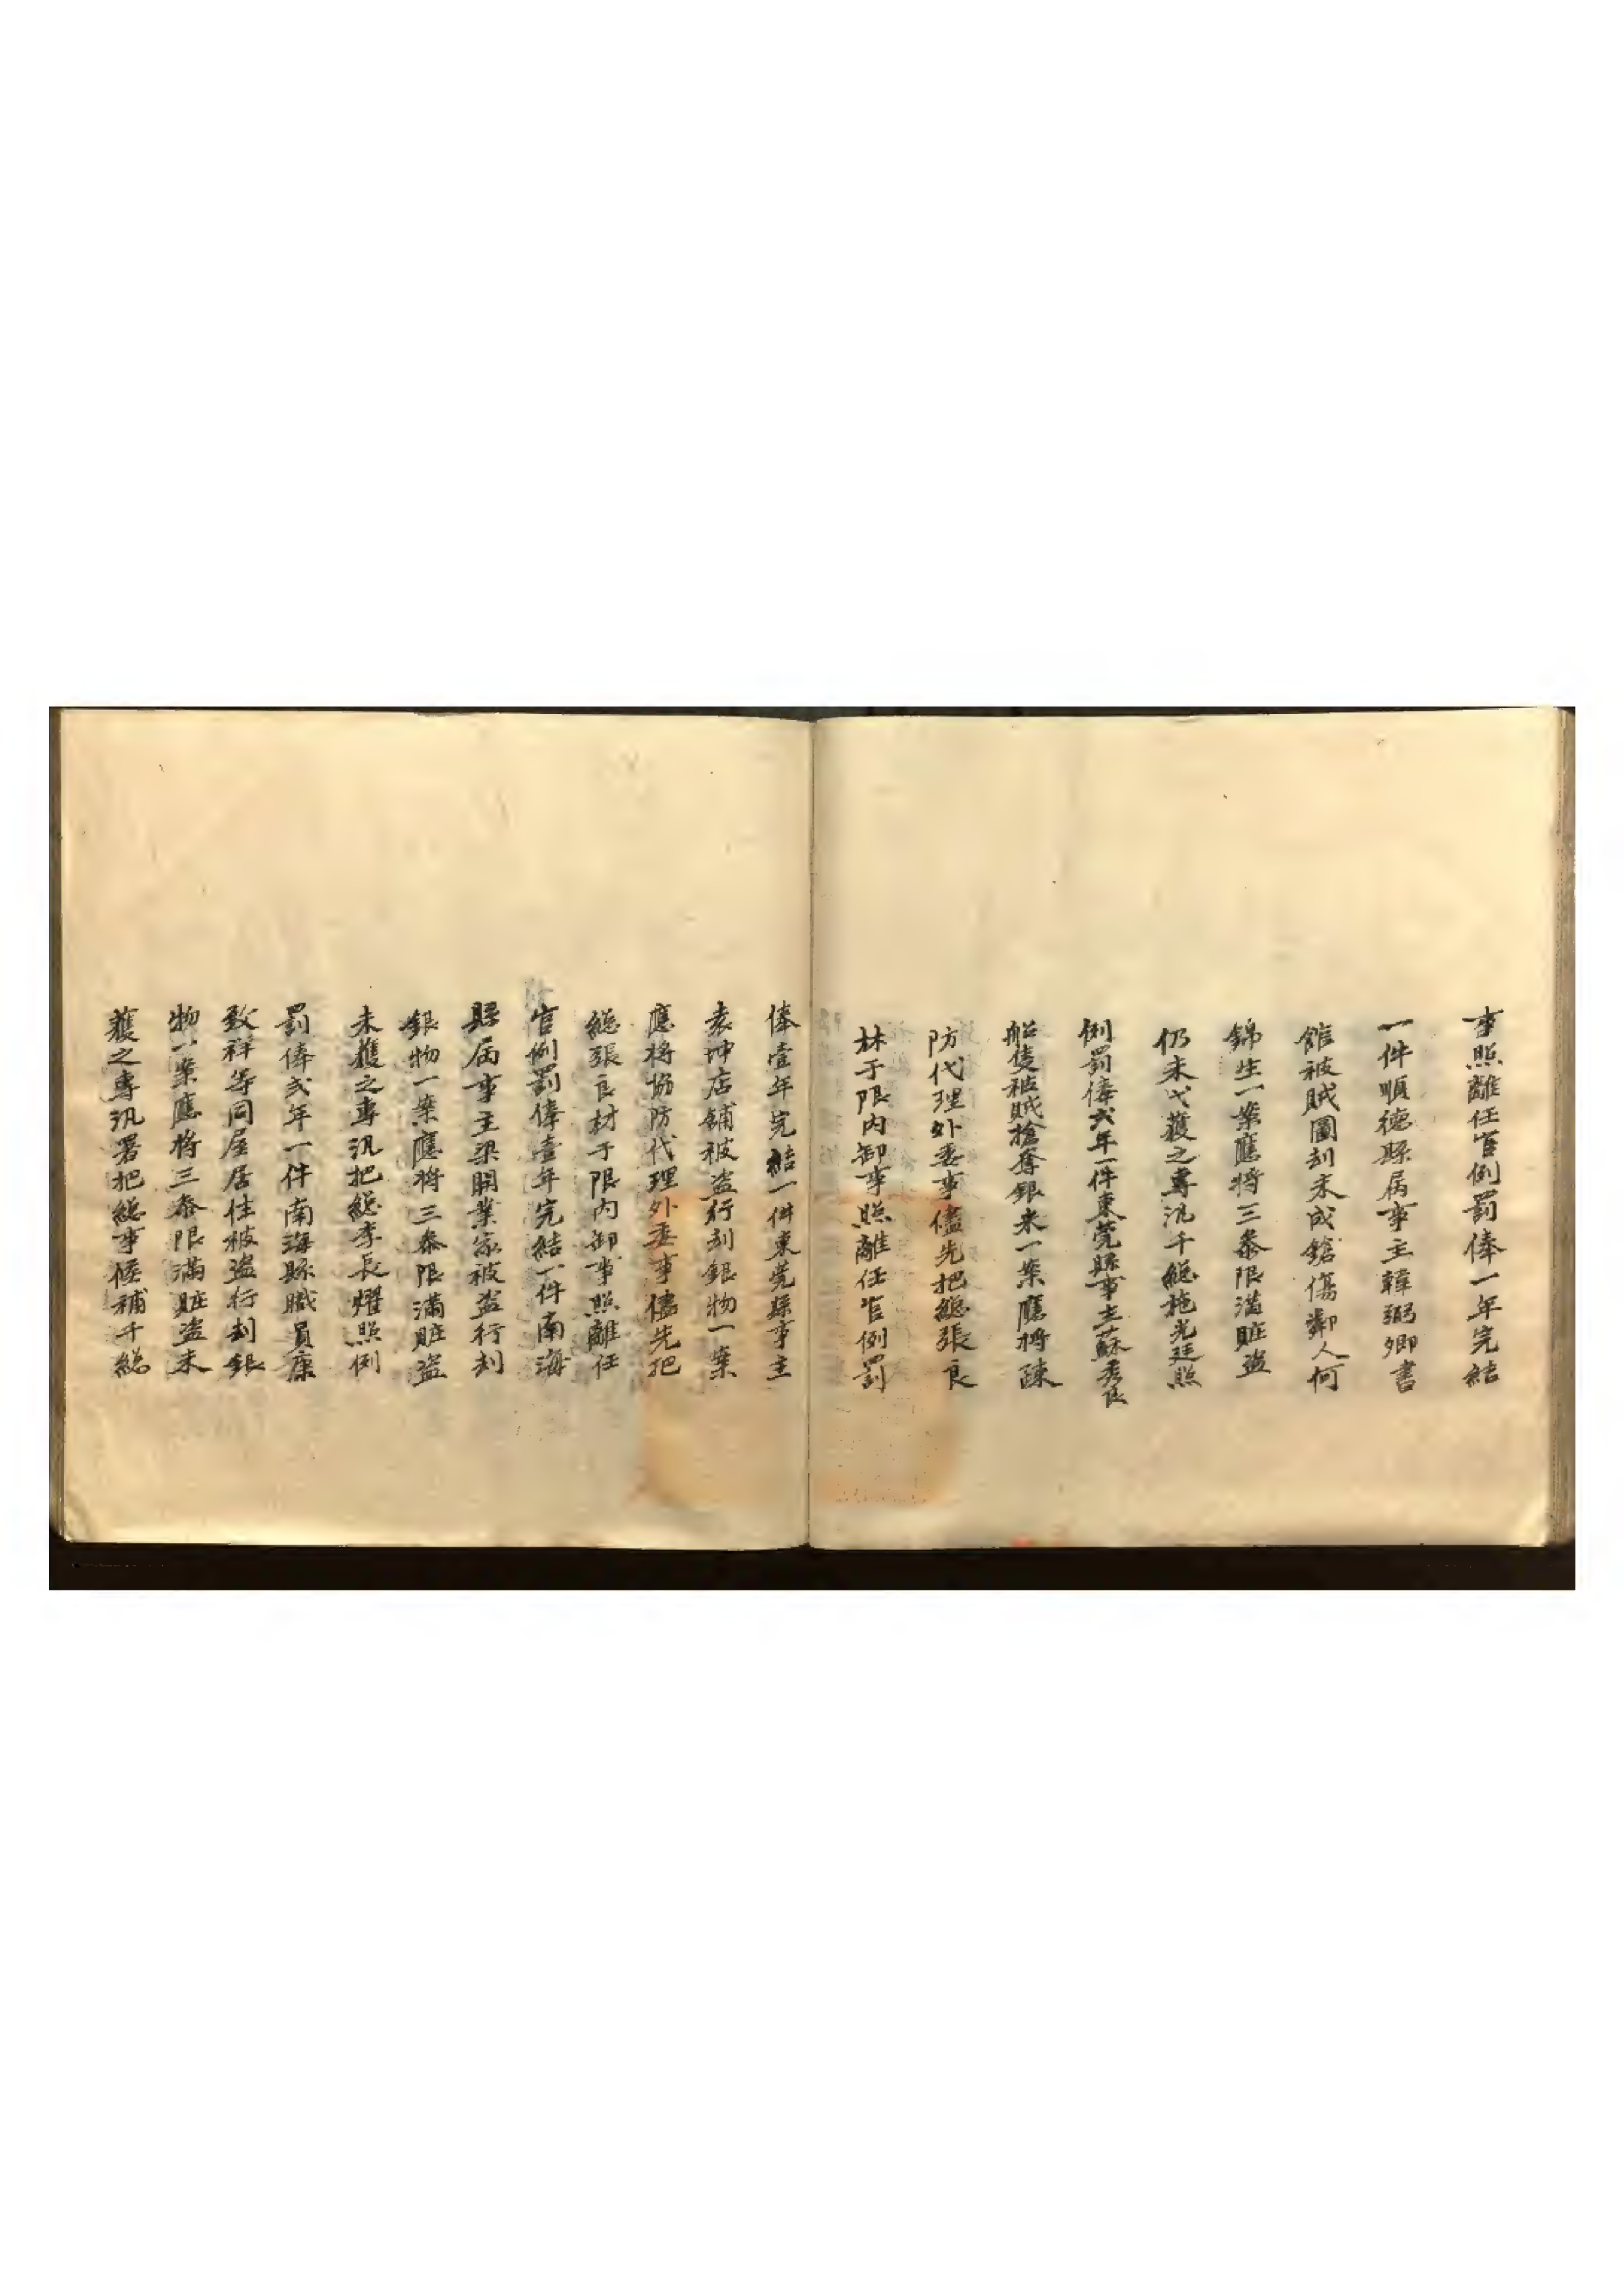 事照離任官例罰俸一年完結
一件順德縣屬事主韓弼卿書
館被賊圖刦未成鎗傷鄰人何
錦生一案應將三叅限滿賍盗
仍未弋獲之專汛千總施光廷照
例罰俸弍年一件東莞縣事主蘇秀良
船隻被賊搶奪銀米一案應將疎
防代理外委事儘先把總張良
林于限内卸事照離任官例罰
俸壹年完結一件東莞縣事主
袁沖店舖被盗行刦銀物一案
應将協防代理外委事儘先把
總張良材于限内卸事照離任
官例罰俸壹年完結一件南海
縣属事主梁開業家被盗行刦
銀物一案應将三叅限滿賍盗
未獲之專汛把總李長燿照例
罰俸弍年一件南海縣職員康
致祥等同屋居住被盗行刦銀
物一案應将三叅限滿賍盗未
獲之專汛署把總事候補千總